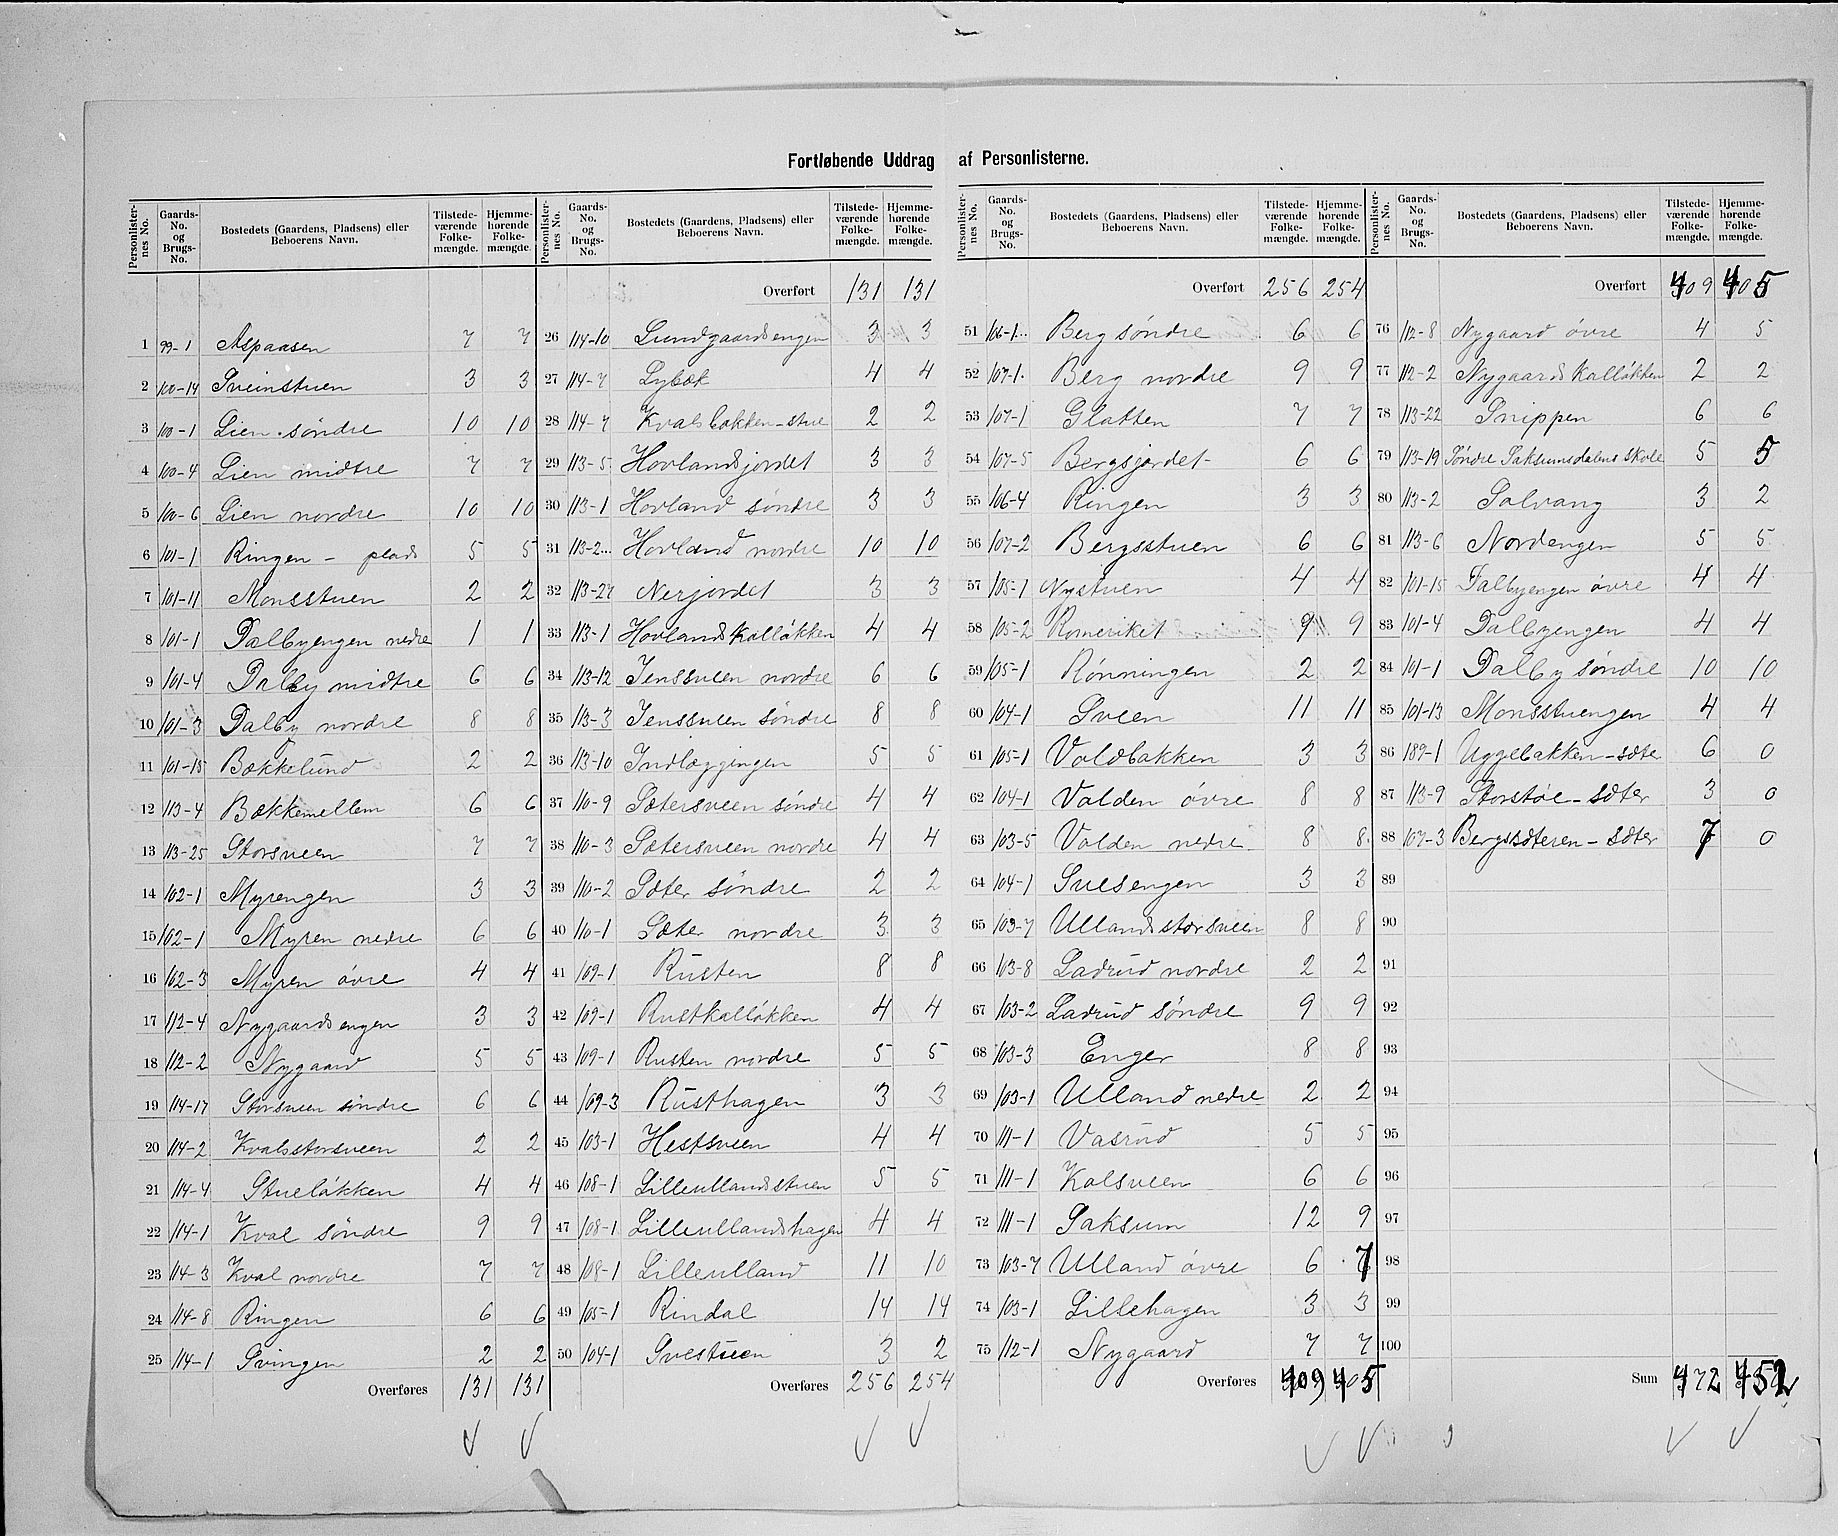 Fortløbende Uddrag af Personlisterne.
Personlister-nes No. | Gaards-No. og Brugs-No. | Bostedets (Gaardens, Pladsens) eller Beboerens Navn. | Tilstede-værende Folke-mængde. | Hjemme-hørende Folke-mængde.
1 99-1 Aspaasen 7 7
2 100-14 Sveinstuen 3 3
3 100-1 Lien søndre 10 10
4 100-4 Lien midtre 7 7
5 100-6 Lien nordre 10 10
6 101-1 Ringen - plads 5 5
7 101-11 Monsstuen 2 2
8 101-1 Dalbyengen nedre 1 1
9 101-4 Dalby midtre 6 6
10 101-3 Dalby nordre 8 8
11 101-15 Bækkelund 2 2
12 113-4 Bækkemellem 6 6
13 113-25 Storsveen 7 7
14 102-1 Myrengen 3 3
15 102-1 Myren nedre 6 6
16 102-3 Myren øvre 4 4
17 112-4 Nygaardsengen 3 3
18 112-2 Nygaard 5 5
19 114-17 Storsveen søndre 6 6
20 114-2 Kvalsstorsveen 2 2
21 114-4 Stueløkken 4 4
22 114-1 Kval søndre 9 9
23 114-3 Kval nordre 7 7
24 114-8 Ringen 6 6
25 114-1 Svingen 2 2
Overføres 131 131
Personlister-nes No. | Gaards-No. og Brugs-No. | Bostedets (Gaardens, Pladsens) eller Beboerens Navn. | Tilstede-værende Folke-mængde. | Hjemme-hørende Folke-mængde.
Overført 131 131
26 114-10 Lundgaardsengen 3 3
27 114-7 Lybæk 4 4
28 114-7 Kvalsbakken-stue 2 2
29 113-5 Hovlandsjordet 3 3
30 113-1 Hovland søndre 3 3
31 113-2 Hovland nordre 10 10
32 113-27 Nerjordet 3 3
33 113-1 Hovlandskalløkken 4 4
34 113-12 Jenssveen nordre 6 6
35 113-3 Jenssveen søndre 8 8
36 113-10 Indlæggingen 5 5
37 110-9 Sætersveen søndre 4 4
38 110-3 Sætersveen nordre 4 4
39 110-2 Sæter søndre 2 2
40 110-1 Sæter nordre 3 3
41 109-1 Rusten 8 8
42 109-1 Rustkalløkken 4 4
43 109-1 Rusten nordre 5 5
44 109-3 Rusthagen 3 3
45 103-1 Hestsveen 4 4
46 108-1 Lilleullandsstuen 5 5
47 108-1 Lilleullandshagen 4 4
48 108-1 Lilleulland 11 10
49 105-1 Rindal 14 14
50 104-1 Svestuen 3 2
Overføres 256 254
Personlister-nes No. | Gaards-No. og Brugs-No. | Bostedets (Gaardens, Pladsens) eller Beboerens Navn. | Tilstede-værende Folke-mængde. | Hjemme-hørende Folke-mængde.
Overført 256 254
51 106-1 Berg søndre 6 6
52 107-1 Berg nordre 9 9
53 107-1 Glatten 7 7
54 107-5 Bergsjordet 6 6
55 106-4 Ringen 3 3
56 107-2 Bergsstuen 6 6
57 105-1 Nystuen 4 4
58 105-2 Romeriket 9 9
59 105-1 Rønningen 2 2
60 104-1 Sveen 11 11
61 105-1 Voldbakken 3 3
62 104-1 Volden øvre 8 8
63 103-5 Volden nedre 8 8
64 104-1 Svesengen 3 3
65 103-7 Ullandsstorsveen 8 8
66 103-8 Ladrud nordre 2 2
67 103-2 Ladrud søndre 9 9
68 103-3 Enger 8 8
69 103-1 Ulland nedre 2 2
70 111-1 Vasrud 5 5
71 111-1 Kalsveen 6 6
72 111-1 Saksum 12 9
73 103-7 Ulland øvre 6 7
74 103-1 Lillehagen 3 3
75 112-1 Nygaard 7 7
Overføres 409 405
Personlister-nes No. | Gaards-No. og Brugs-No. | Bostedets (Gaardens, Pladsens) eller Beboerens Navn. | Tilstede-værende Folke-mængde. | Hjemme-hørende Folke-mængde.
Overført 409 405
76 112-8 Nygaard øvre 4 5
77 112-2 Nygaardskalløkken 2 2
78 113-22 Snippen 6 6
79 113-19 Søndre Saksumsdalens skole 5 5
80 113-2 Solvang 3 2
81 113-6 Nordengen 5 5
82 101-15 Dalbyengen øvre 4 4
83 101-4 Dalbyengen 4 4
84 101-1 Dalby søndre 10 10
85 101-13 Monsstuengen 4 4
86 189-1 Uggelbakken-sæter 6 0
87 113-9 Storstøe-sæter 3 0
88 107-3 Bergssæteren-sæter 7 0
89
90
91
92
93
94
95
96
97
98
99
100
Sum 472 452